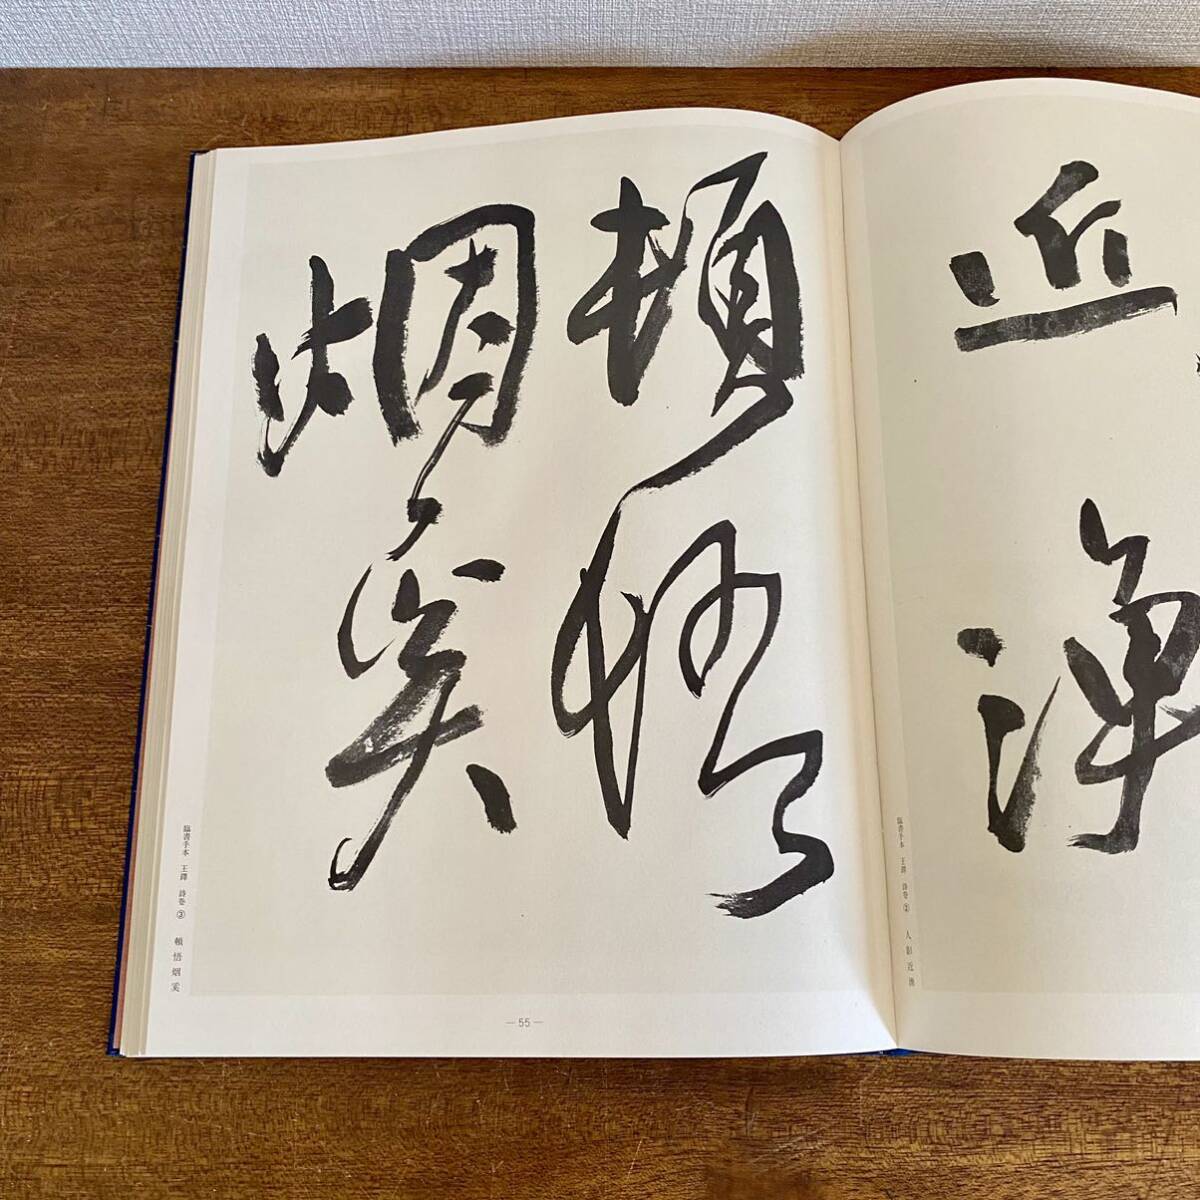 近
臨書手本 王鐸 詩巻② 人影近
頓悟
烟奚
臨書手本 王鐸 詩巻③ 頓悟烟奚
—55—